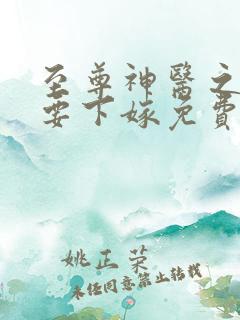 至尊神醫之
要下嫁免費
姚正荣
未经同意禁止转载